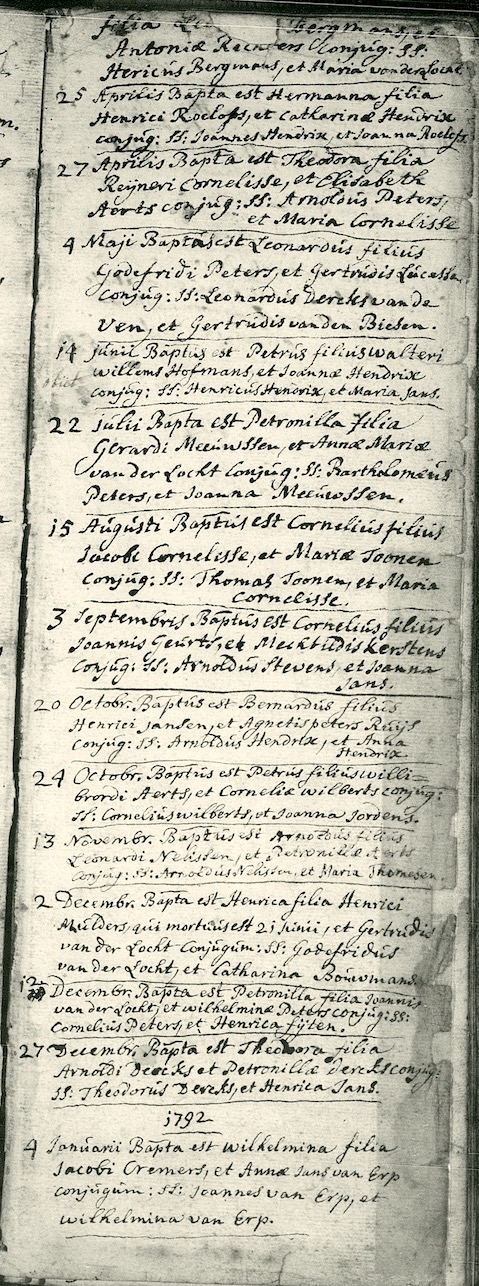 filia Bergmans, et
Antoniæ Reenders Conjug: SS:
Hericus Bergmans, et Maria vonder Locht
25 Aprilis Bapta est Hermanna filia
Henrici Roelofs, et Catharinæ Hendrix
conjug: SS: Joannes Hendrix, et Joanna Roelofs
27 Aprilis Bapta est Theodora filia
Reijneri Cornelisse, et Elisabeth
Aerts conjug: SS: Arnoldus Peters,
et Maria Cornelisse
4 Maji Baptus est Leonardus filius
Godefridi Peters, et Gertrudis Lucassen
Conjug: SS: Leonardus Dercks van de
Ven, et Gertrudis vanden Biesen.
14 Junii Baptus est Petrus filius Walteri
obiet
Willems Hofmans, et Joannæ Hendrix
conjug: SS: Henricus Hendrix, et Maria Jans.
22 Julii Bapta est Petronilla filia
Gerardi Meeuwssen, et Annæ Mariæ
van der Locht Conjug: SS: Bartholomeus
Peters, et Joanna Meeuwssen.
15 Augusti Baptus est Cornelius filius
Jacobi Cornelisse, et Mariæ Toonen
Conjug: SS: Thomas Toonen, et Maria
Cornelisse.
3 Septembris Baptus est Cornelius filius
Joannis Geurts, et Mechtildis Kerstens
Conjug: SS: Arnoldus Stevens, et Joanna
Jans.
20 Octobr. Baptus est Bernardus filius
Henrici Jansen, et Agnetis peters Ruijs
Conjug: SS: Arnoldus Hendrix, et Anna
Hendrix
24 Octobr. Baptus est Petrus filius Willi=
brordi Aerts, et Corneliæ Wilberts conjug:
SS: Cornelius Wilberts, et Joanna Jordens.
13 Novembr. Baptus est Arnoldus filius
Leonardi Nelissen, et Petronillæ Aerts
Conjug: SS: Arnoldus Nelissen, et Maria Thomesen
2 Decembr. Bapta est Henrica filia Henrici
Mulders, qui mortuus est 21 Junii, et Gertrudis
van der Locht Conjugum: SS: Godefridus
van der Locht, et Catharina Bouwmans.
12 Decembr. Bapta est Petronilla filia Joannis
van der Locht, et Wilhelminæ Peters conjug: SS:
Cornelius Peters, et Henrica fijten.
27 Decembr. Bapta est Theodora filia
Arnoldi Dercks et Petronillæ Dercks conjug:
SS: Theodorus Dercks, et Henrica Jans.
1792
4 Januarii Bapta est Wilhelmina filia
Jacobi Cremers, et Annæ Jans van Erp
Conjugum: SS: Joannes van Erp, et
Wilhelmina van Erp.